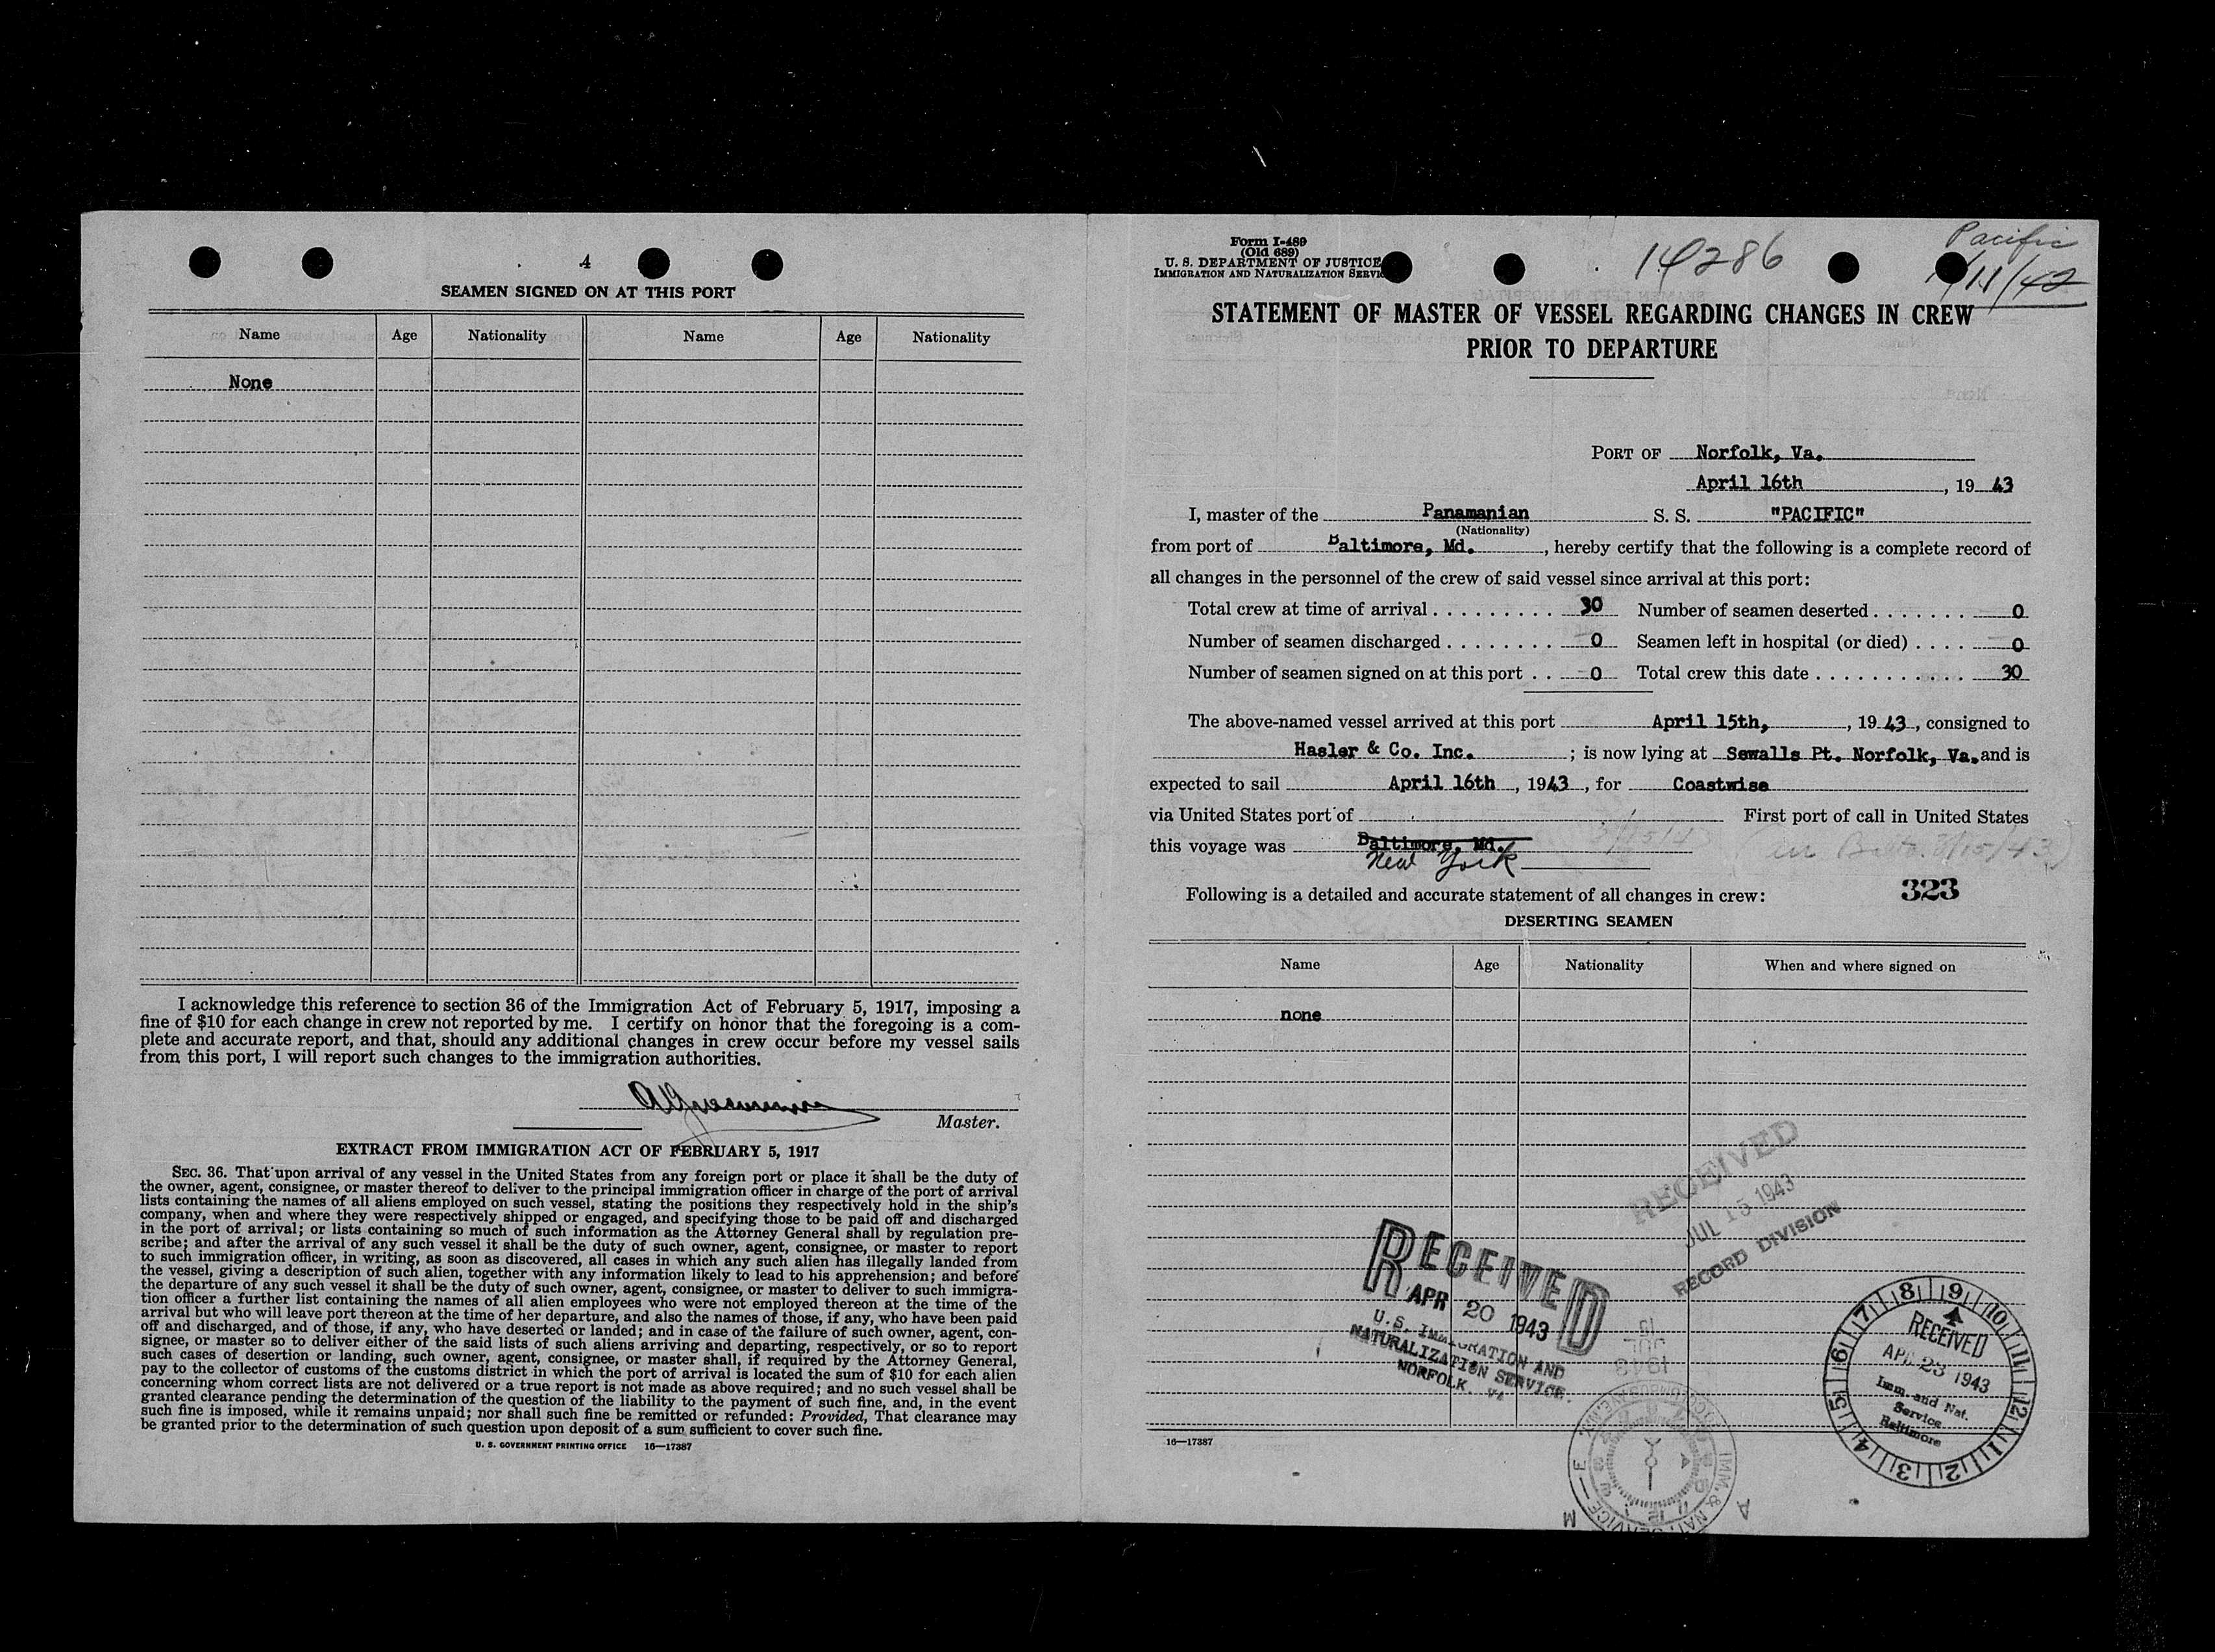 4
SEAMEN SIGNED ON AT THIS PORT
Name Age Nationality Name Age Nationality
None
I acknowledge this reference to section 36 of the Immigration Act of February 5, 1917, imposing a
fine of $10 for each change in crew not reported by me. I certify on honor that the foregoing is a com-
plete and accurate report, and that, should any additional changes in crew occur before my vessel sails
from this port, I will report such changes to the immigration authorities.
Master.
EXTRACT FROM IMMIGRATION ACT OF FEBRUARY 5, 1917
SEC. 36. That upon arrival of any vessel in the United States from any foreign port or place it shall be the duty of
the owner, agent, consignee, or master thereof to deliver to the principal immigration officer in charge of the port of arrival
lists containing the names of all aliens employed on such vessel, stating the positions they respectively hold in the ship's
company, when and where they were respectively shipped or engaged, and specifying those to be paid off and discharged
in the port of arrival; or lists containing so much of such information as the Attorney General shall by regulation pre-
scribe; and after the arrival of any such vessel it shall be the duty of such owner, agent, consignee, or master to report
to such immigration officer, in writing, as soon as discovered, all cases in which any such alien has illegally landed from
the vessel, giving a description of such alien, together with any information likely to lead to his apprehension; and before
the departure of any such vessel it shall be the duty of such owner, agent, consignee, or master to deliver to such immigra-
tion officer a further list containing the names of all alien employees who were not employed thereon at the time of the
arrival but who will leave port thereon at the time of her departure, and also the names of those, if any, who have been paid
off and discharged, and of those, if any, who have deserted or landed; and in case of the failure of such owner, agent, con-
signee, or master so to deliver either of the said lists of such aliens arriving and departing, respectively, or so to report
such cases of desertion or landing, such owner, agent, consignee, or master shall, if required by the Attorney General,
pay to the collector of customs of the customs district in which the port of arrival is located the sum of $10 for each alien
concerning whom correct lists are not delivered or a true report is not made as above required; and no such vessel shall be
granted clearance pending the determination of the question of the liability to the payment of such fine, and, in the event
such fine is imposed, while it remains unpaid; nor shall such fine be remitted or refunded: Provided, That clearance may
be granted prior to the determination of such question upon deposit of a sum sufficient to cover such fine.
U. S. GOVERNMENT PRINTING OFFICE 16—17387
Form I-489
(Old 689)
U. S. DEPARTMENT OF JUSTICE
IMMIGRATION AND NATURALIZATION SERVIC
14286
Pacific
11/42
STATEMENT OF MASTER OF VESSEL REGARDING CHANGES IN CREW
PRIOR TO DEPARTURE
PORT OF Norfolk, Va.
April 16th, 19 43
I, master of the Panamanian S. S. "PACIFIC"
(Nationality)
from port of Baltimore, Md., hereby certify that the following is a complete record of
all changes in the personnel of the crew of said vessel since arrival at this port:
Total crew at time of arrival . . . . . . . . . 30 Number of seamen deserted . . . . . . . 0
Number of seamen discharged . . . . . . . . 0 Seamen left in hospital (or died) . . . . 0
Number of seamen signed on at this port . . 0 Total crew this date . . . . . . . . . . . . 30
The above-named vessel arrived at this port April 15th, , 19 43, consigned to
Hasler & Co. Inc. ; is now lying at Sewalls Pt. Norfolk, Va. and is
expected to sail April 16th, 1943, for Coastwise
via United States port of First port of call in United States
this voyage was Baltimore, Md.
New York
Following is a detailed and accurate statement of all changes in crew: 323
DESERTING SEAMEN
Name Age Nationality When and where signed on
none
RECEIVED
JUL 15 1943
RECORD DIVISION
RECEIVED
APR 20 1943
U.S. IMMIGRATION AND
NATURALIZATION SERVICE.
NORFOLK. Va
8 9 10 11 12 1 2 3 4 5 6 7
RECEIVED
APR 23 1943
Imm. and Nat.
Service
Baltimore
16—17387